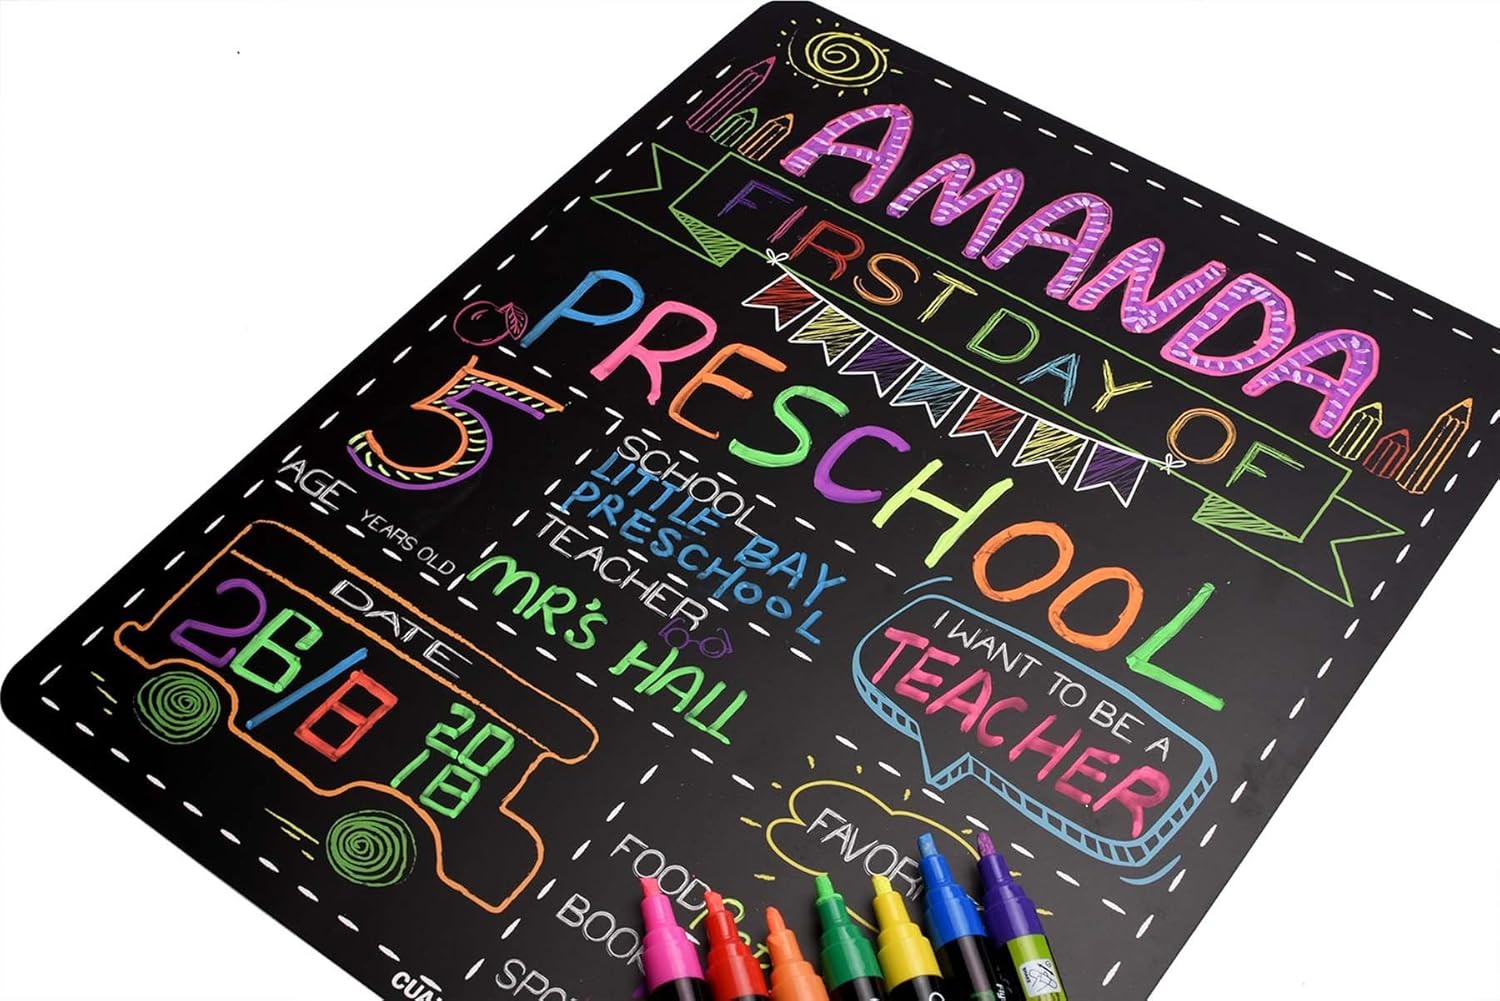 AMANDA
FIRST DAY OF
PRESCHOOL
5
AGE
YEARS OLD
SCHOOL
LITTLE BAY
PRESCHOOL
TEACHER
MR'S HALL
DATE
26/8
2018
I WANT TO BE A
TEACHER
FOOD